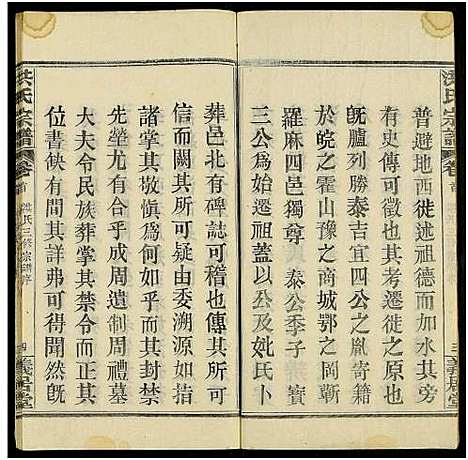 洪氏宗譜
卷首
普避地西徙述祖德而加水其旁
傳序可徵也其考遷徙之原也
既臚列勝泰吉宜四公之胤寄籍
於皖之霍山豫之商城鄂之岡蘄
羅麻四邑獨尊 泰公季子 賓
三公為始遷祖蓋以公及妣氏卜
三 義居堂
葬邑北有碑可稽也傳其所可
信而闕其所可疑由委溯源如指
諸掌其敬慎為何如乎而其封禁
先塋尤有合於成周之周禮墓
大夫令民族葬掌其禁令而正其
位書缺有間其詳弗可得聞然既
洪氏宗譜
卷首
洪氏三修宗譜序
四 義居堂